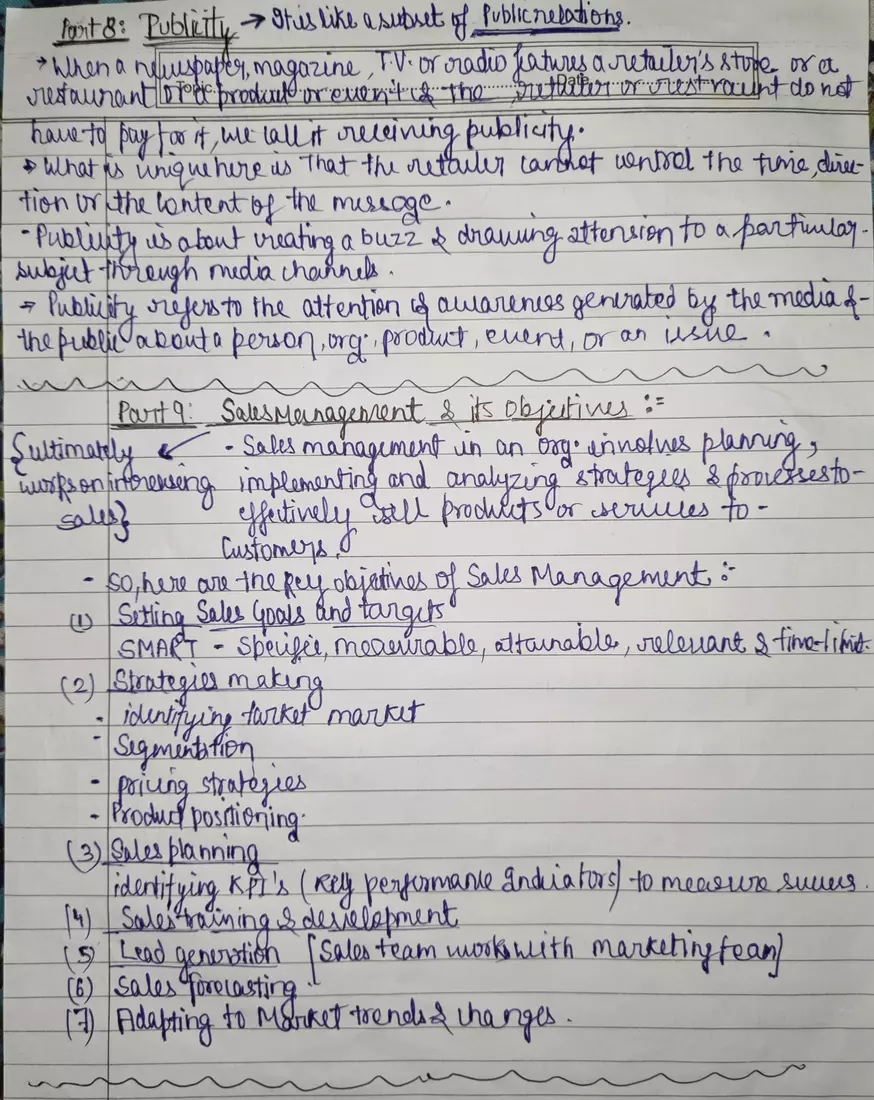 Part 8: Publicity → It is like a subset of Public relations.
→ When a newspaper, magazine, T.V. or radio features a retailer's store or a
restaurant or a product or event & the retailer or restraunt do not
Topic Date
have to pay for it, we call it receiving publicity.
→ What is unique here is that the retailer cannot control the time, direc-
tion or the content of the message.
- Publicity is about creating a buzz & drawing attension to a particular-
subject through media channels.
→ Publicity refers to the attention & awareness generated by the media &-
the public about a person, org., product, event, or an issue.
Part 9: Sales Management & its Objectives :=
{ultimately ↙ - Sales management in an org. involves planning,
works on increasing implementing and analyzing strategies & processes to-
sales} effectively sell products or services to-
Customers.
- So, here are the key objectives of Sales Management :-
(1) Setting Sales Goals and targets
SMART - Specific, measurable, attainable, relevant & time-limit.
(2) Strategies making
- identifying tarket market
- Segmentation
- pricing strategies
- Product positioning.
(3) Sales planning
identifying KPI's (Key performance Indicators) to measure success.
(4) Sales training & development
(5) Lead generation [Sales team works with marketing team]
(6) Sales forecasting.
(7) Adapting to Market trends & changes.